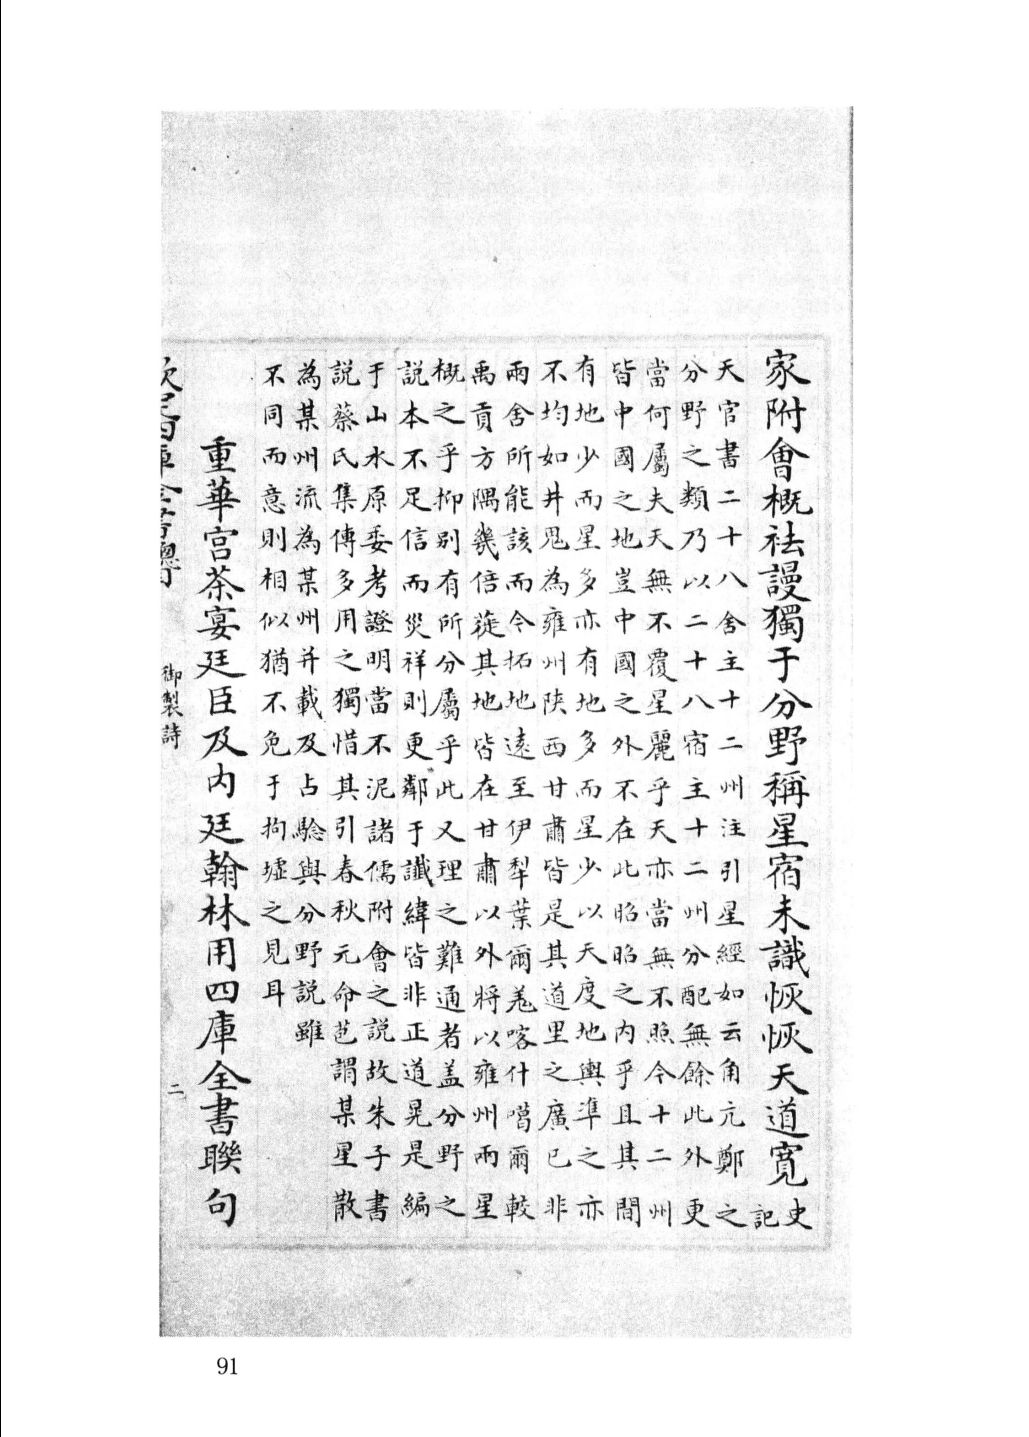 家附會概祛謾獨于分野稱星宿未識恢恢天道寬史記
天官書二十八舍主十二州注引星經如云角亢鄭之
分野之類乃以二十八宿主十二州分配無餘此外更
當何屬夫天無不覆星麗乎天亦當無不照今十二州
皆中國之地豈中國之外不在此昭昭之内乎且其間
有地少而星多亦有地多而星少以天度地輿準之亦
不均如井鬼為雍州陝西甘肅皆是其道里之廣已非
兩舍所能該而今拓地遠至伊犁葉爾羌喀什噶爾較
禹貢方隅幾倍蓰其地皆在甘肅以外將以雍州兩星
概之乎抑别有所分屬乎此又理之難通者盖分野之
説本不足信而災祥則更鄰于讖緯皆非正道晃是編
于山水原委考證明當不泥諸儒附會之説故朱子書
説蔡氏集傳多用之獨惜其引春秋元命苞謂某星散
為某州流為某州并載及占驗與分野説雖
不同而意則相似猶不免于拘墟之見耳
重華宫茶宴廷臣及内廷翰林用四庫全書聯句
欽定四庫全書總目
御製詩
二
91